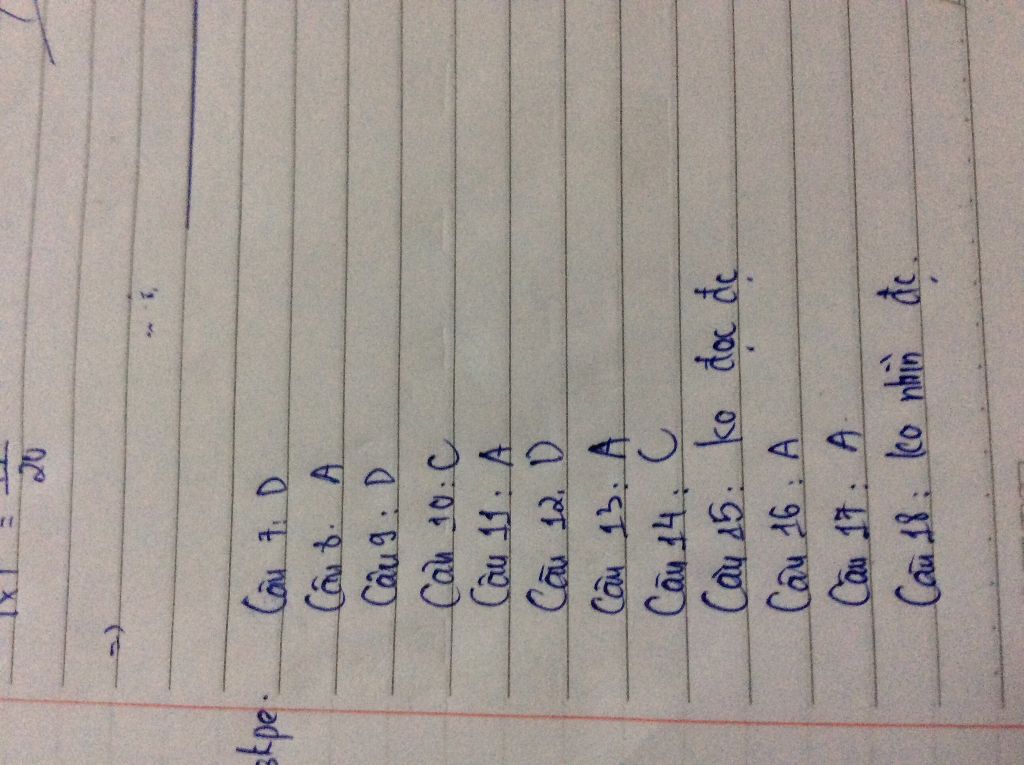 = 
20
=)
Câu 7: D
Câu 8: A
Câu 9: D
Câu 10: C
Câu 11: A
Câu 12: D
Câu 13: A
Câu 14: C
Câu 15: ko đọc đc
Câu 16: A
Câu 17: A
Câu 18: ko nhìn đc.